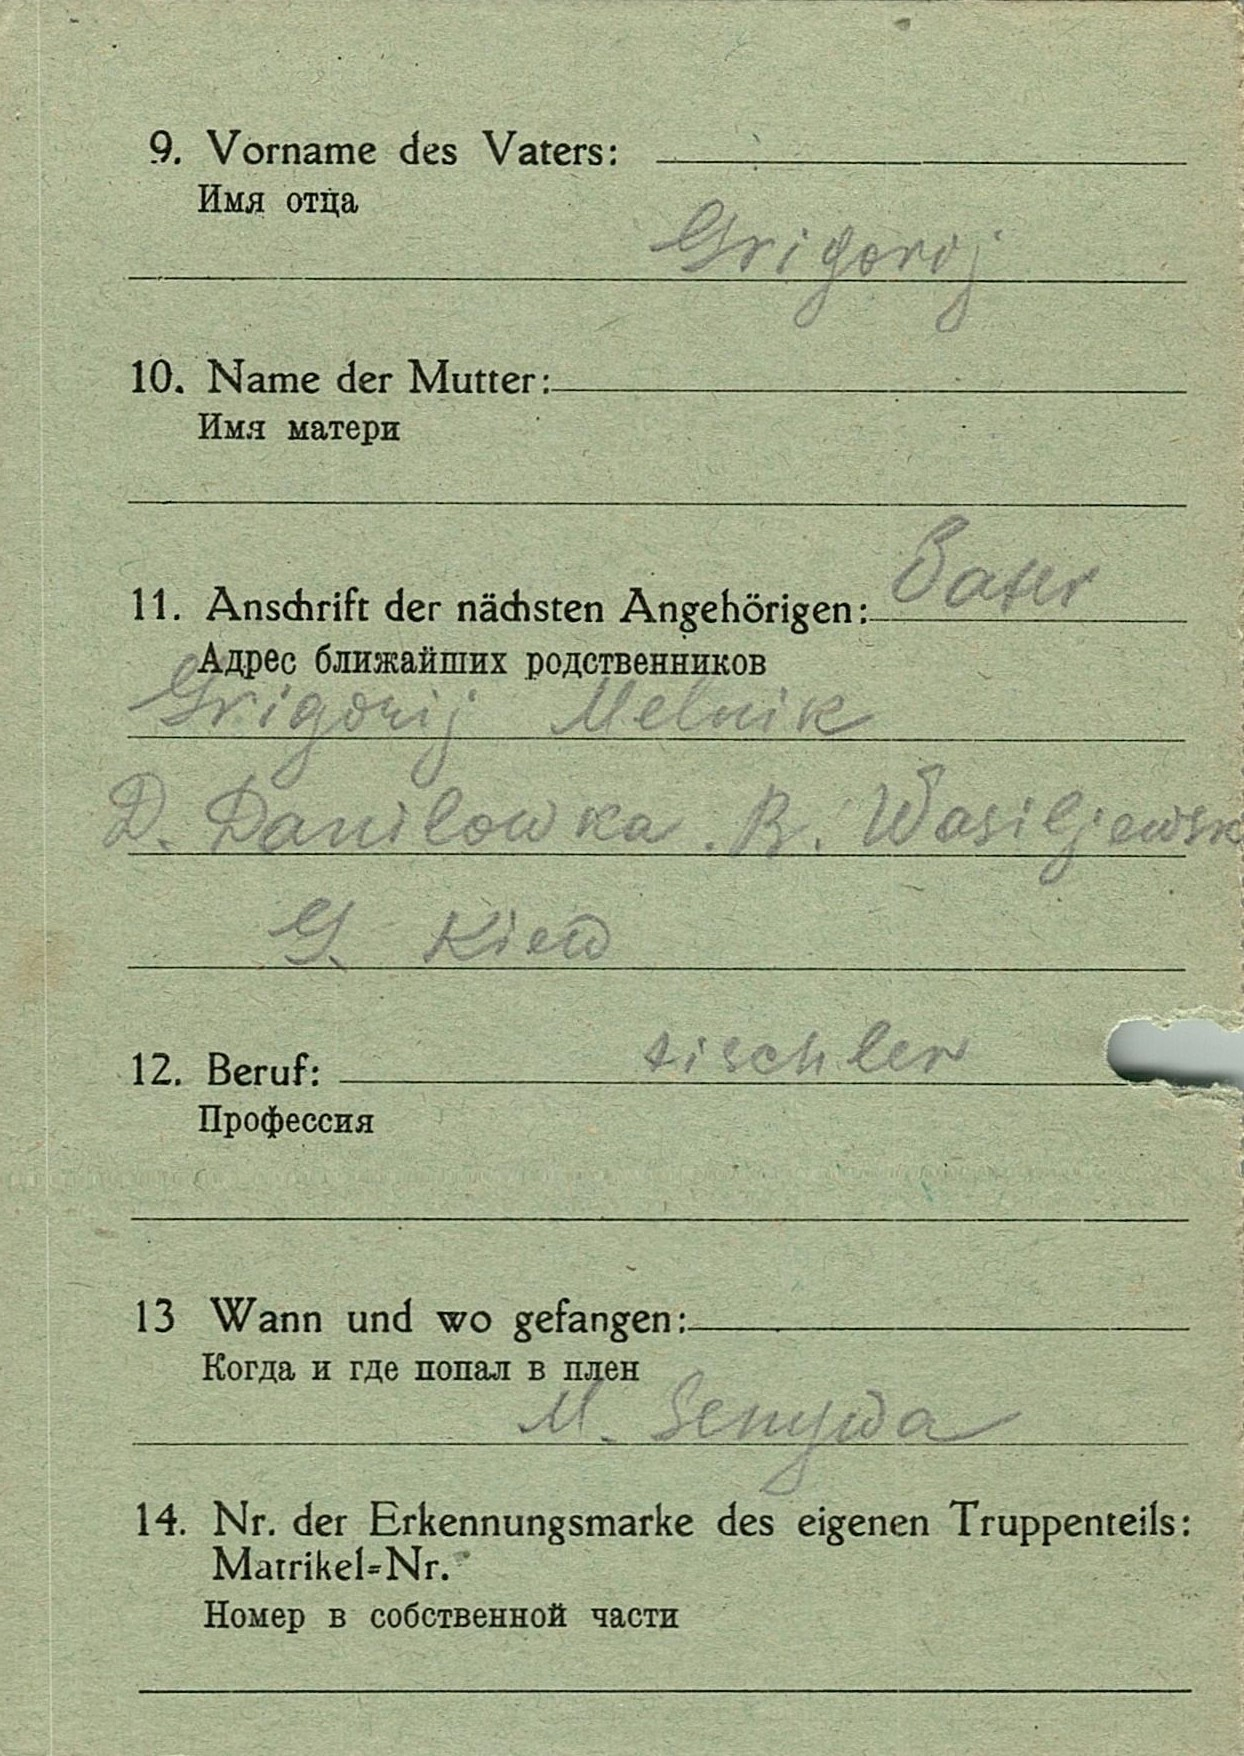 9. Vorname des Vaters:
Имя отца
Grigorij
10. Name der Mutter:
Имя матери
11. Anschrift der nächsten Angehörigen: Vater
Адрес ближайших родственников
Grigorij Melnik
D. Danilowka. R. Wasiljewsk
G. Kiew
12. Beruf: tischler
Профессия
13 Wann und wo gefangen:
Когда и где попал в плен
M.
14. Nr. der Erkennungsmarke des eigenen Truppenteils:
Matrikel=Nr.
Номер в собственной части